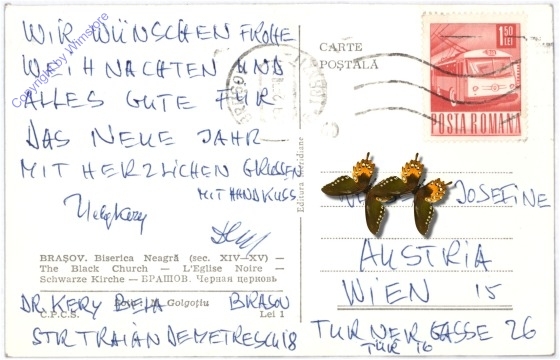 WIR WÜNSCHEN FROHE
WEIHNACHTEN UND
ALLES GUTE FÜR
DAS NEUE JAHR
MIT HERZLICHEN GRÜSSEN
MIT HANDKUSS
Copyright by Wimstore
CARTE
POȘTALĂ
1,50
LEI
POSTA ROMANA
Editura Meridiane
JOSEFINE
AUSTRIA
WIEN 15
TURNERGASSE 26
TÜR 16
BRAȘOV. Biserica Neagră (sec. XIV—XV) —
The Black Church — L'Eglise Noire —
Schwarze Kirche — БРАШОВ. Черная церковь
Golgoțiu
C.P.C.S. Lei 1
DR. KERY BELA BRASOV
STR TRAIAN DEMETRESCU 18